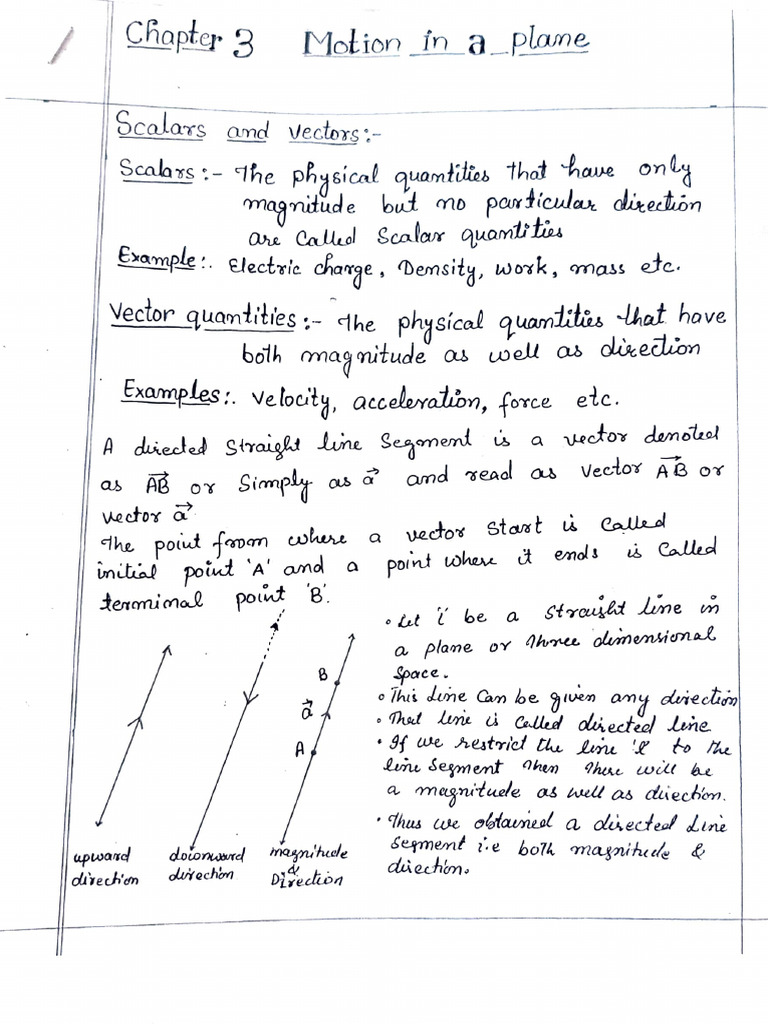 Chapter 3 Motion in a plane
Scalars and vectors:-
Scalars:- The physical quantities that have only
magnitude but no particular direction
are called Scalar quantities
Example:. Electric charge, Density, work, mass etc.
Vector quantities:- The physical quantities that have
both magnitude as well as direction
Examples:. Velocity, acceleration, force etc.
A directed straight line segment is a vector denoted
as A⃗B⃗ or Simply as a⃗ and read as vector A⃗B⃗ or
vector a⃗
The point from where a vector start is called
initial point 'A' and a point where it ends is called
terminal point 'B'.
• Let 'l' be a straight line in
a plane or three dimensional
space.
• This line can be given any direction
• That line is called directed line
• If we restrict the line 'l' to the
line segment then there will be
a magnitude as well as direction.
• Thus we obtained a directed line
segment i.e both magnitude &
direction.
B
a⃗
A
upward
direction
downward
direction
magnitude
&
Direction